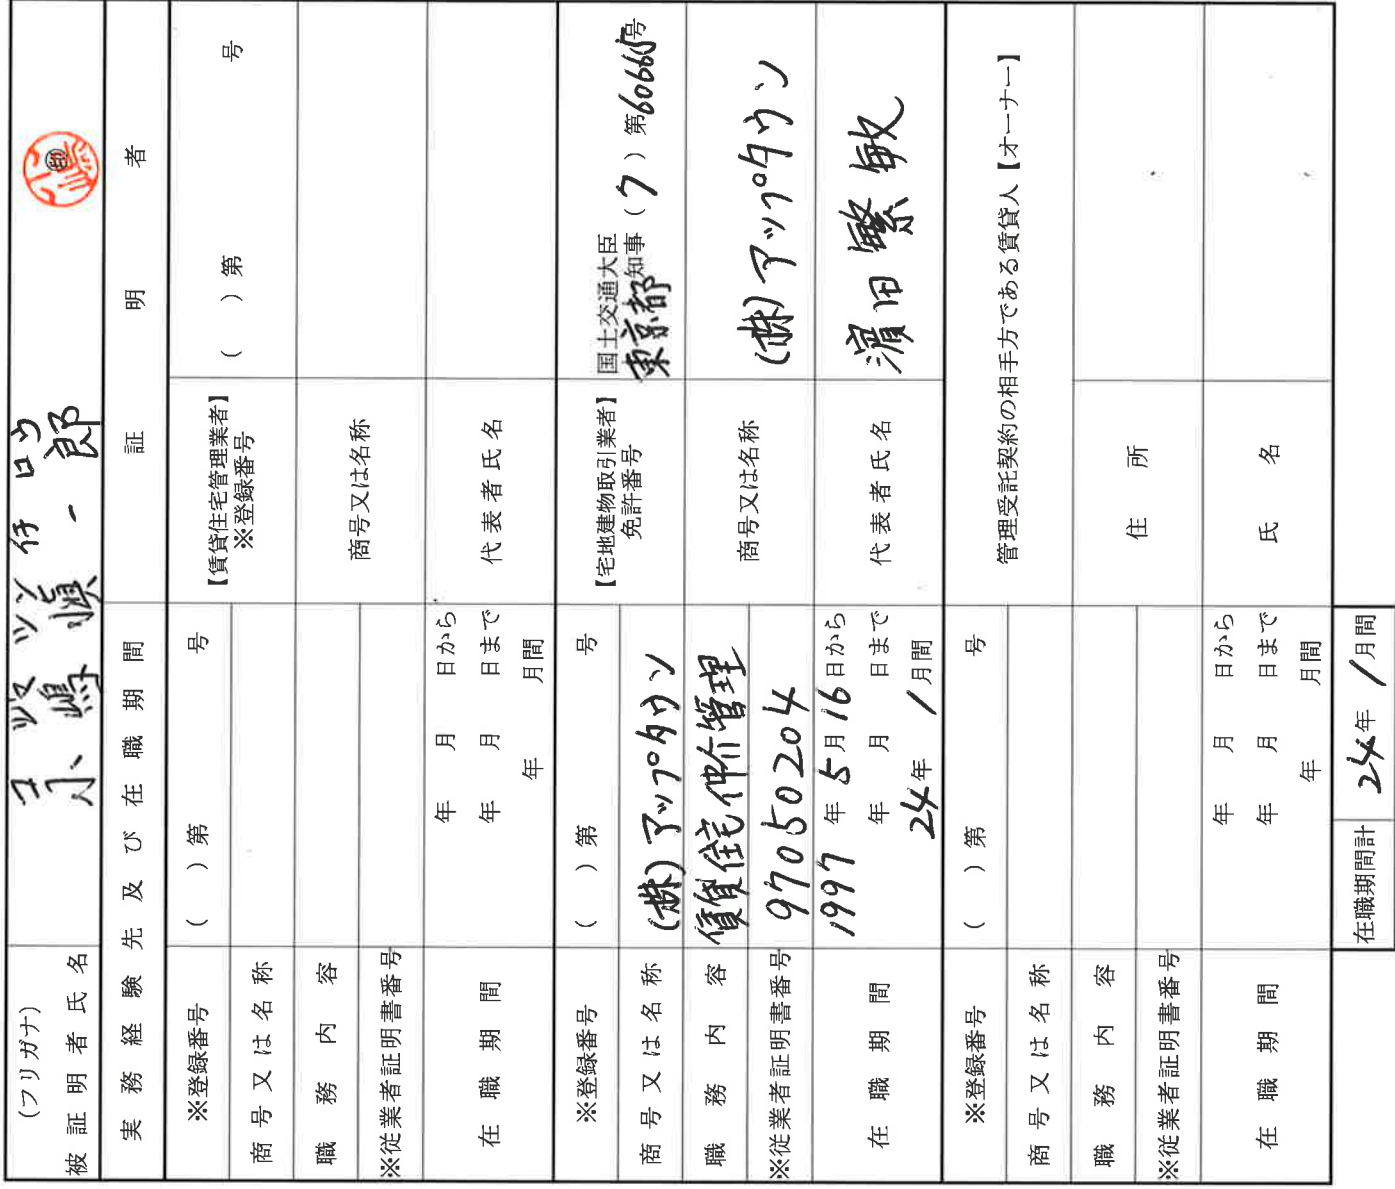 (フリガナ)
コ ジマ シン イチ ロウ
被証明者氏名
小嶋 慎一郎
実務経験先及び在職期間
証明者
※登録番号
( )第 号
【賃貸住宅管理業者】
※登録番号
( )第 号
商号又は名称
商号又は名称
職務内容
※従業者証明書番号
在職期間
年 月 日から
年 月 日まで
年 月間
代表者氏名
※登録番号
( )第 号
【宅地建物取引業者】
免許番号
国土交通大臣
東京都知事(7)第60665号
商号又は名称
(株)アップタウン
職務内容
賃貸住宅仲介管理
商号又は名称
(株)アップタウン
※従業者証明書番号
97050204
在職期間
1997年5月16日から
年 月 日まで
24年1月間
代表者氏名
濱田繁敏
※登録番号
( )第 号
管理受託契約の相手方である賃貸人【オーナー】
商号又は名称
職務内容
住所
※従業者証明書番号
在職期間
年 月 日から
年 月 日まで
年 月間
氏名
在職期間計
24年1月間